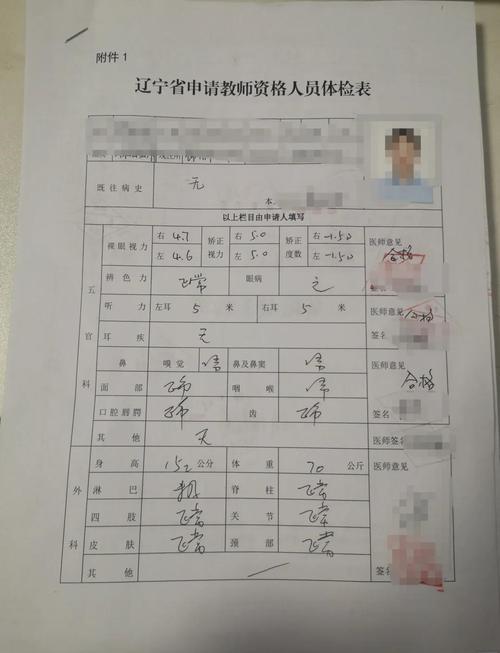 附件1
辽宁省申请教师资格人员体检表
既往病史 无
本
以上栏目由申请人填写
五官科
裸眼视力 右 4.7 矫正视力 右 5.0 矫正度数 右 -1.50 医师意见
左 4.6 左 5.0 左 -1.50 合格
辨色力 正常 眼病 无
签名
听力 左耳 5 米 右耳 5 米 医师意见
合格
耳疾 无 签名
鼻 嗅觉 鼻及鼻窦 医师意见
面部 咽喉 合格
口腔唇腭 齿 签名
其他 无 医师签名
外科
身高 152 公分 体重 70 公斤 医师意见
淋巴 脊柱 正常
四肢 正常 关节 正常
皮肤 正常 颈部 正常
签名
其他